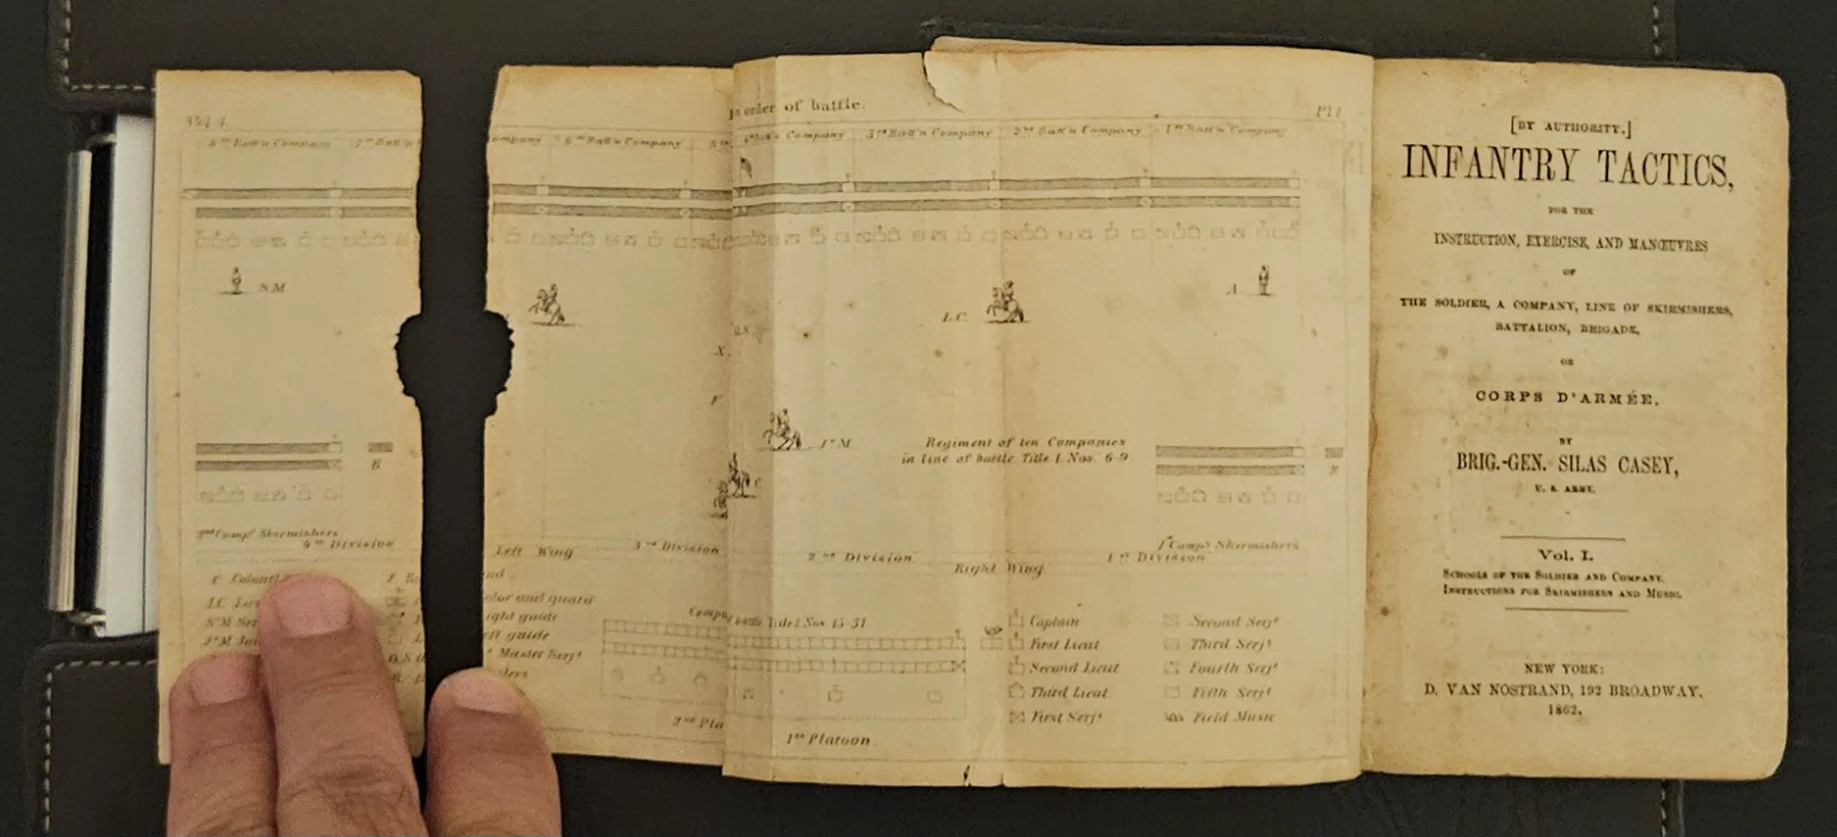 Vol 1.
In order of battle.
Pl 1
8th Batt'n Company
7th Batt'n
ompany
6th Batt'n Company
5th
4th Batt'n Company
3rd Batt'n Company
2nd Batt'n Company
1st Batt'n Company
S M
L.C.
A
Q.S.
X.
F
Jr M
C
Regiment of ten Companies
in line of battle Title I. Nos. 6-9
B
2nd Comp. Skirmishers
4th Division
Left Wing
3rd Division
2nd Division
Right Wing
1st Comp. Skirmishers
1st Division
C Colonel
L.C.
S M Ser
Jr M
olor and guard
ight guide
eft guide
Master Serjt
Comp
battle Title I Nos. 15-31
2nd Pla
1st Platoon
Captain
First Lieut
Second Lieut
Third Lieut
First Serjt
Second Serjt
Third Serjt
Fourth Serjt
Fifth Serjt
Field Music
[BY AUTHORITY.]
INFANTRY TACTICS,
FOR THE
INSTRUCTION, EXERCISE, AND MANŒUVRES
OF
THE SOLDIER, A COMPANY, LINE OF SKIRMISHERS,
BATTALION, BRIGADE,
OR
CORPS D'ARMÉE,
BY
BRIG.-GEN. SILAS CASEY,
U. S. ARMY.
Vol. I.
SCHOOLS OF THE SOLDIER AND COMPANY.
INSTRUCTIONS FOR SKIRMISHERS AND MUSIC.
NEW YORK:
D. VAN NOSTRAND, 192 BROADWAY.
1862.